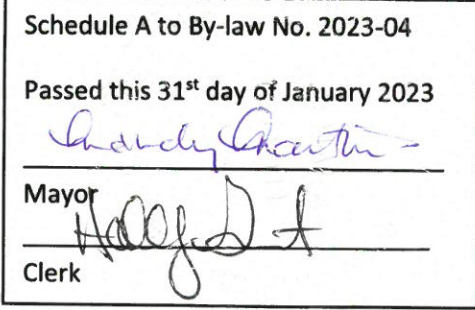 Schedule A to By-law No. 2023-04
Passed this 31st day of January 2023
Mayor
Clerk